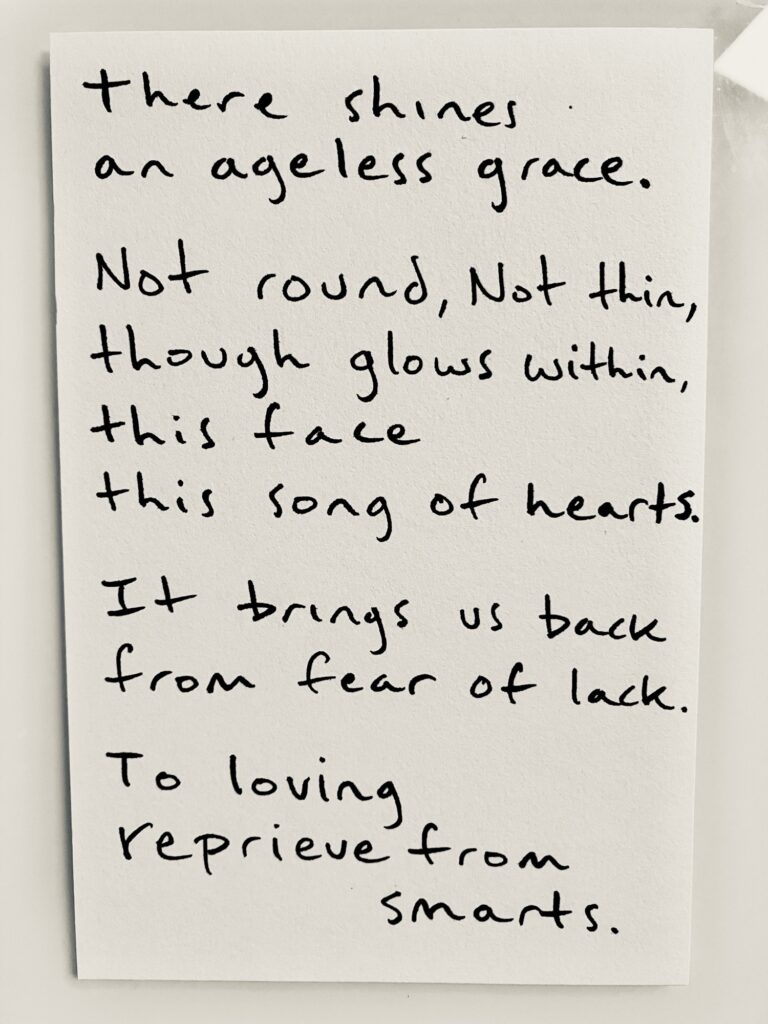 there shines
an ageless grace.
Not round, Not thin,
though glows within,
this face
this song of hearts.
It brings us back
from fear of lack.
To loving
reprieve from
smarts.